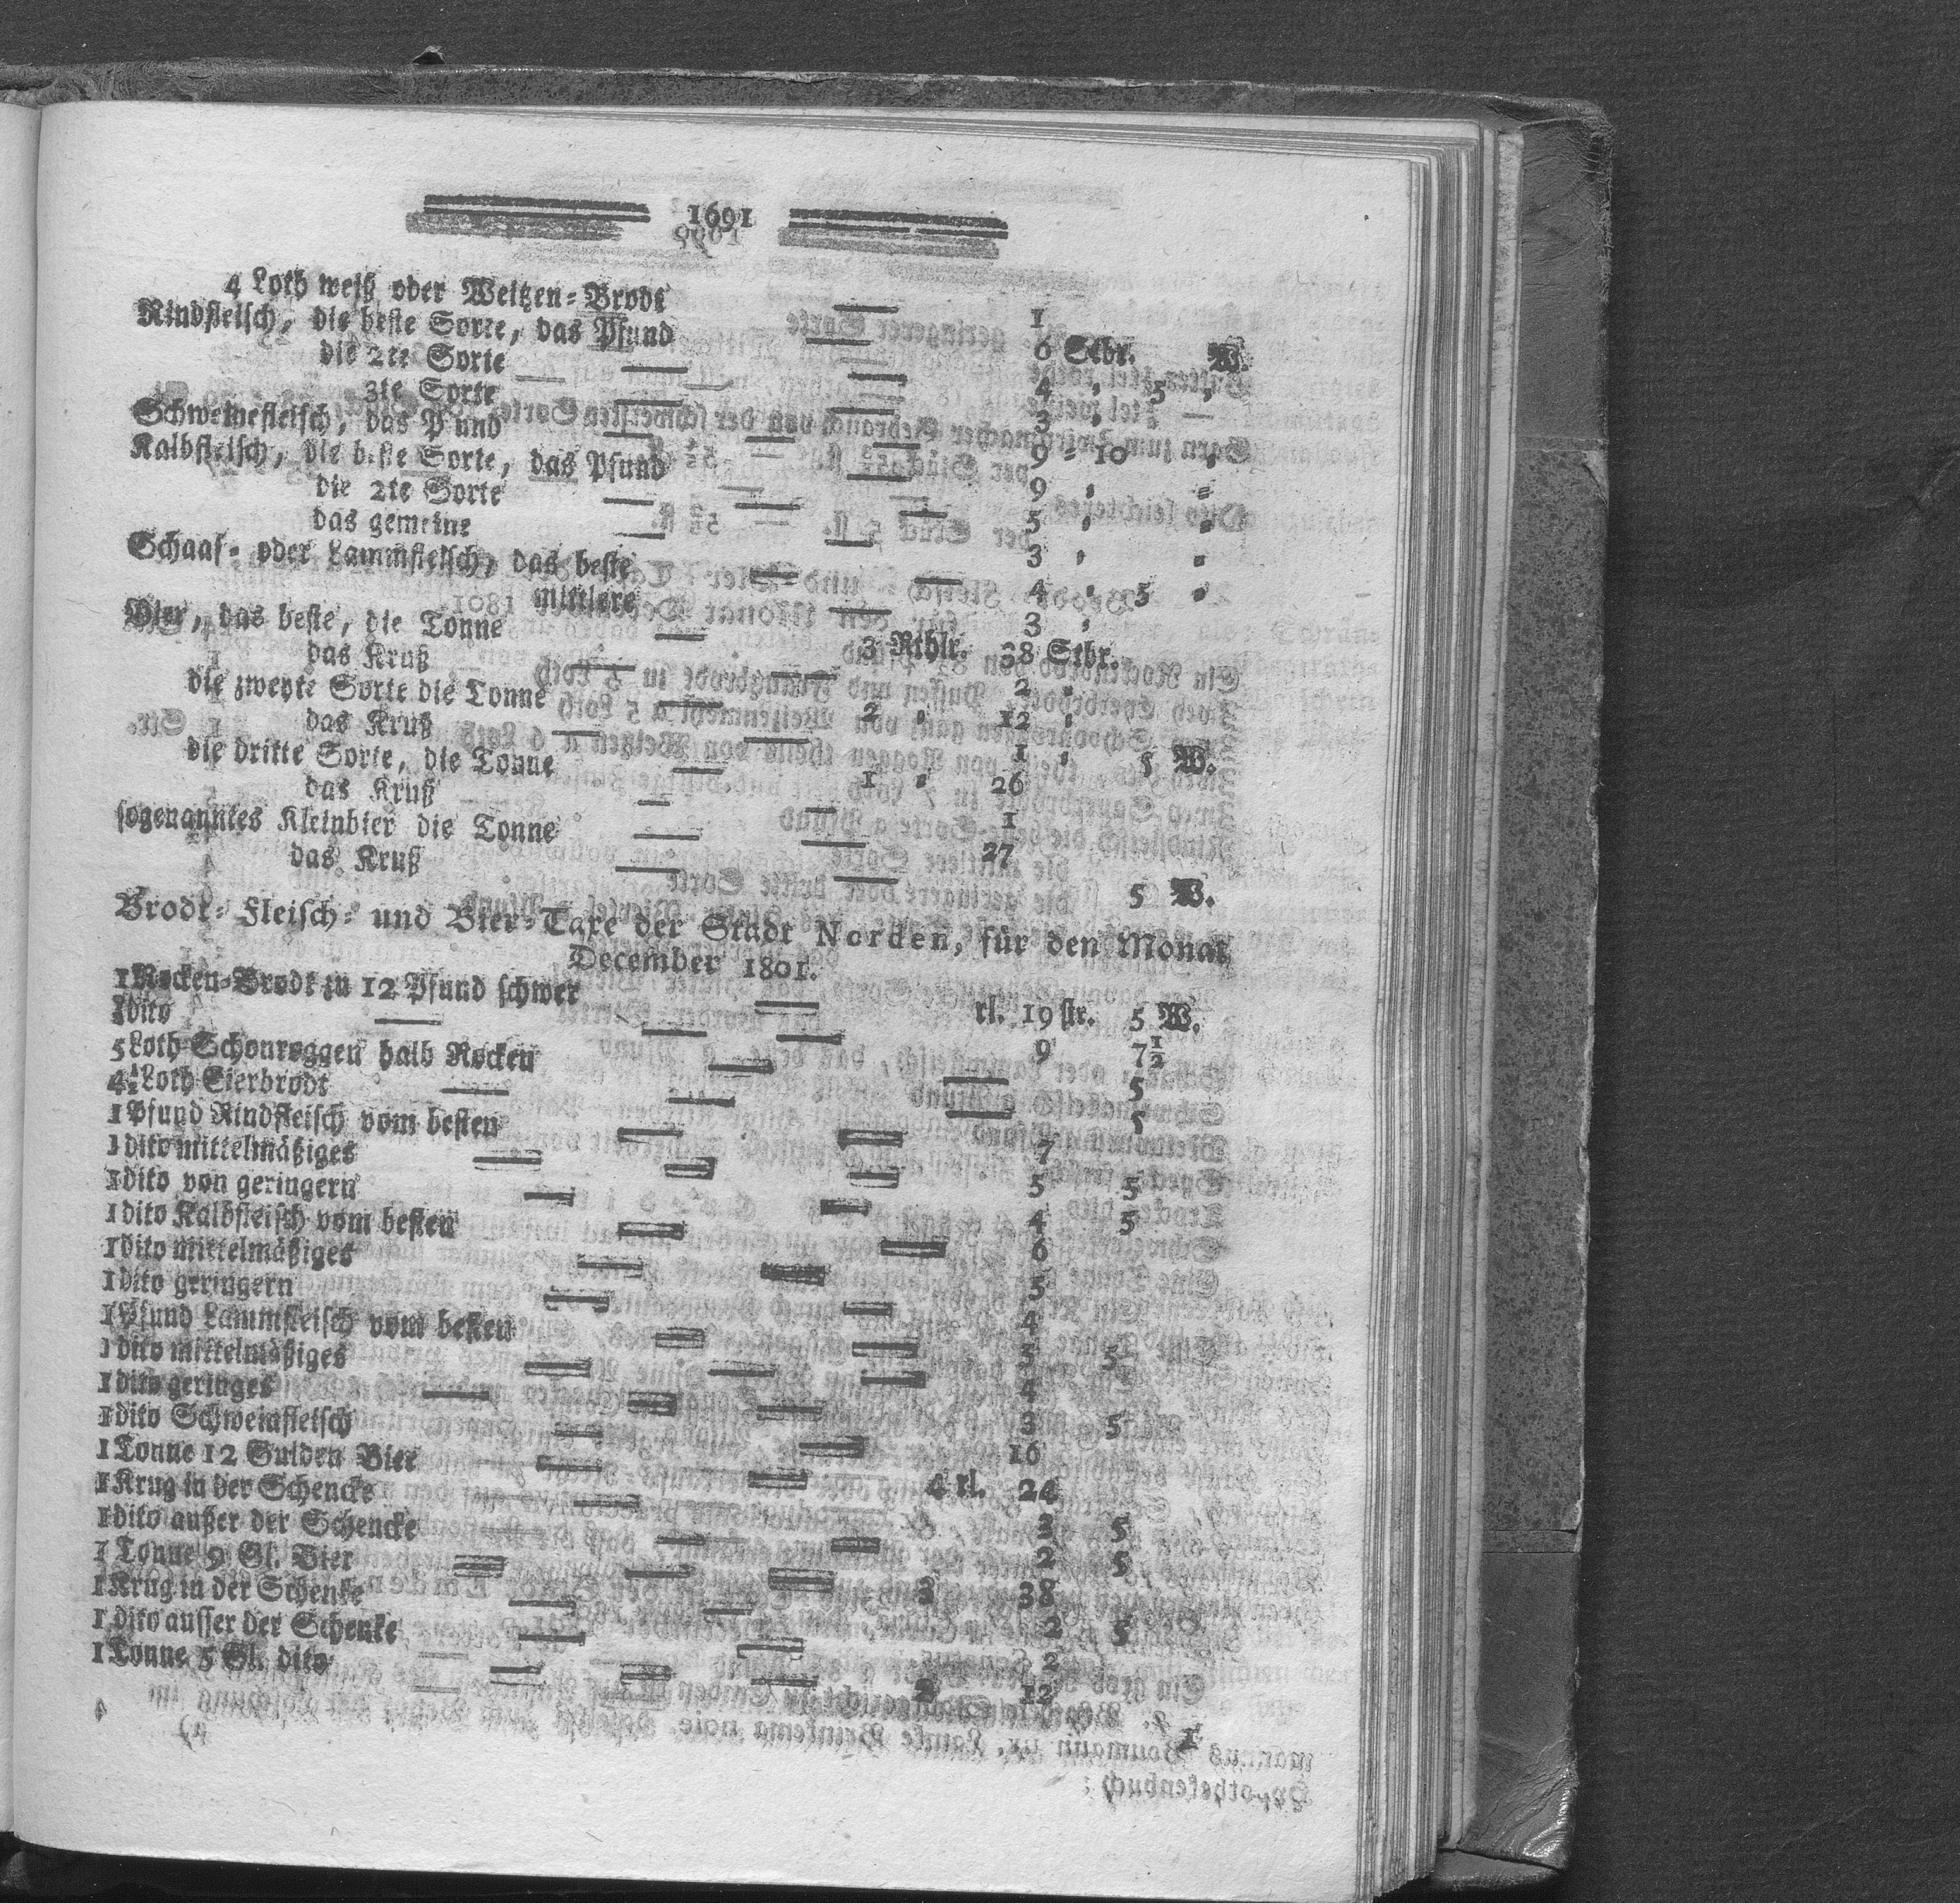 1691
4 Loth weiß oder Weitzen-Brodt — 1
Rindfleisch, die beste Sorte, das Pfund — 6 Stbr. W.
die 2te Sorte — — 4 , 5 ,
3te Sorte — — 3 ,
Schweinefleisch, das Pfund — — — 9 = 10 ,
Kalbfleisch, die beste Sorte, das Pfund — 9 , =
die 2te Sorte — — — 5 , ,
das gemeine — — 3 , ,
Schaaf- oder Lammfleisch, das beste — — 4 , 5 ,
mittlere — 3 ,
Bier, das beste, die Tonne — 3 Rthlr. 38 Stbr.
das Kruß — — 2 ,
die zweyte Sorte die Tonne — 2 , 12 ,
das Kruß — — 1 , 5 W.
die dritte Sorte, die Tonne — 1 , 26
das Kruß — — 1
sogenanntes Kleinbier die Tonne — — 27
das Kruß — — 5 W.
Brodt- Fleisch- und Bier-Taxe der Stadt Norden, für den Monat
December 1801.
1 Rocken-Brodt zu 12 Pfund schwer — rl. 19 str. 5 W.
dito — — — 9 7½
5 Loth Schonroggen halb Rocken — — 5
4½ Loth Eierbrodt — — — 5
1 Pfund Rindfleisch vom besten — — 7
1 dito mittelmäßiges — — — 5 5
1 dito von geringern — — 4 5
1 dito Kalbfleisch vom besten — — 6
1 dito mittelmäßiges — — 5
1 dito geringern — — 4
1 Pfund Lammfleisch vom besten — — 5 5
1 dito mittelmäßiges — — — 4
1 dito geringes — — — 3 5
1 dito Schweinfleisch — — 16
1 Tonne 12 Gulden Bier — — 4 rl. 24
1 Krug in der Schencke — — — 3 5
1 dito außer der Schencke — — 2 5
1 Tonne 9 Gl. Bier — — — 3 38
1 Krug in der Schenke — — 2 5
1 dito ausser der Schenke — — 2
1 Tonne 5 Gl. dito — — — 2 12
1